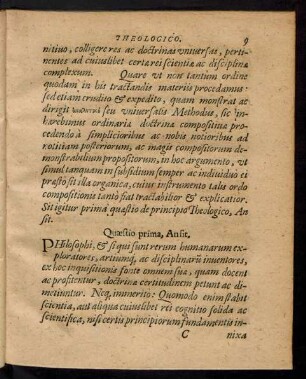 THEOLOGICO. 9
nitiuo, colligere res ac doctrinas vniuersas, perti-
nentes ad cuiuslibet certæ rei scientiæ ac disciplinæ
complexum. Quare vt non tantum ordine
quodam in his tractandis materiis procedamus:
sed etiam erudito & expedito, quam monstrat ac
dirigit seu vniuersalis Methodus, sic in-
hærebimus ordinaria doctrina compositiua pro-
cedendo à simplicioribus ac nobis notioribus ad
notitiam posteriorum, ac magis compositorum de-
monstrabilium propositorum, in hoc argumento, vt
simul tanquam in subsidium semper ac indiuiduo ei
præsto sit illa organica, cuius instrumento talis ordo
compositionis tanto fiat tractabilior & explicatior.
Sit igitur prima quæstio de principio Theologico, An
sit.
Quæstio prima, An sit.
PHilosophi, & si qui sunt rerum humanarum ex-
ploratores, artiumq́, ac disciplinarũ inuentores,
ex hoc inquisitionis fonte omnem suã, quam docent
ac profitentur, doctrinæ certitudinem petunt ac di-
metiuntur. Neq́, immerito: Quomodo enim stabit
scientia, aut aliqua cuiuslibet rei cognitio solida ac
scientifica, nisi certis principiorum fundamentis in-
C nixa